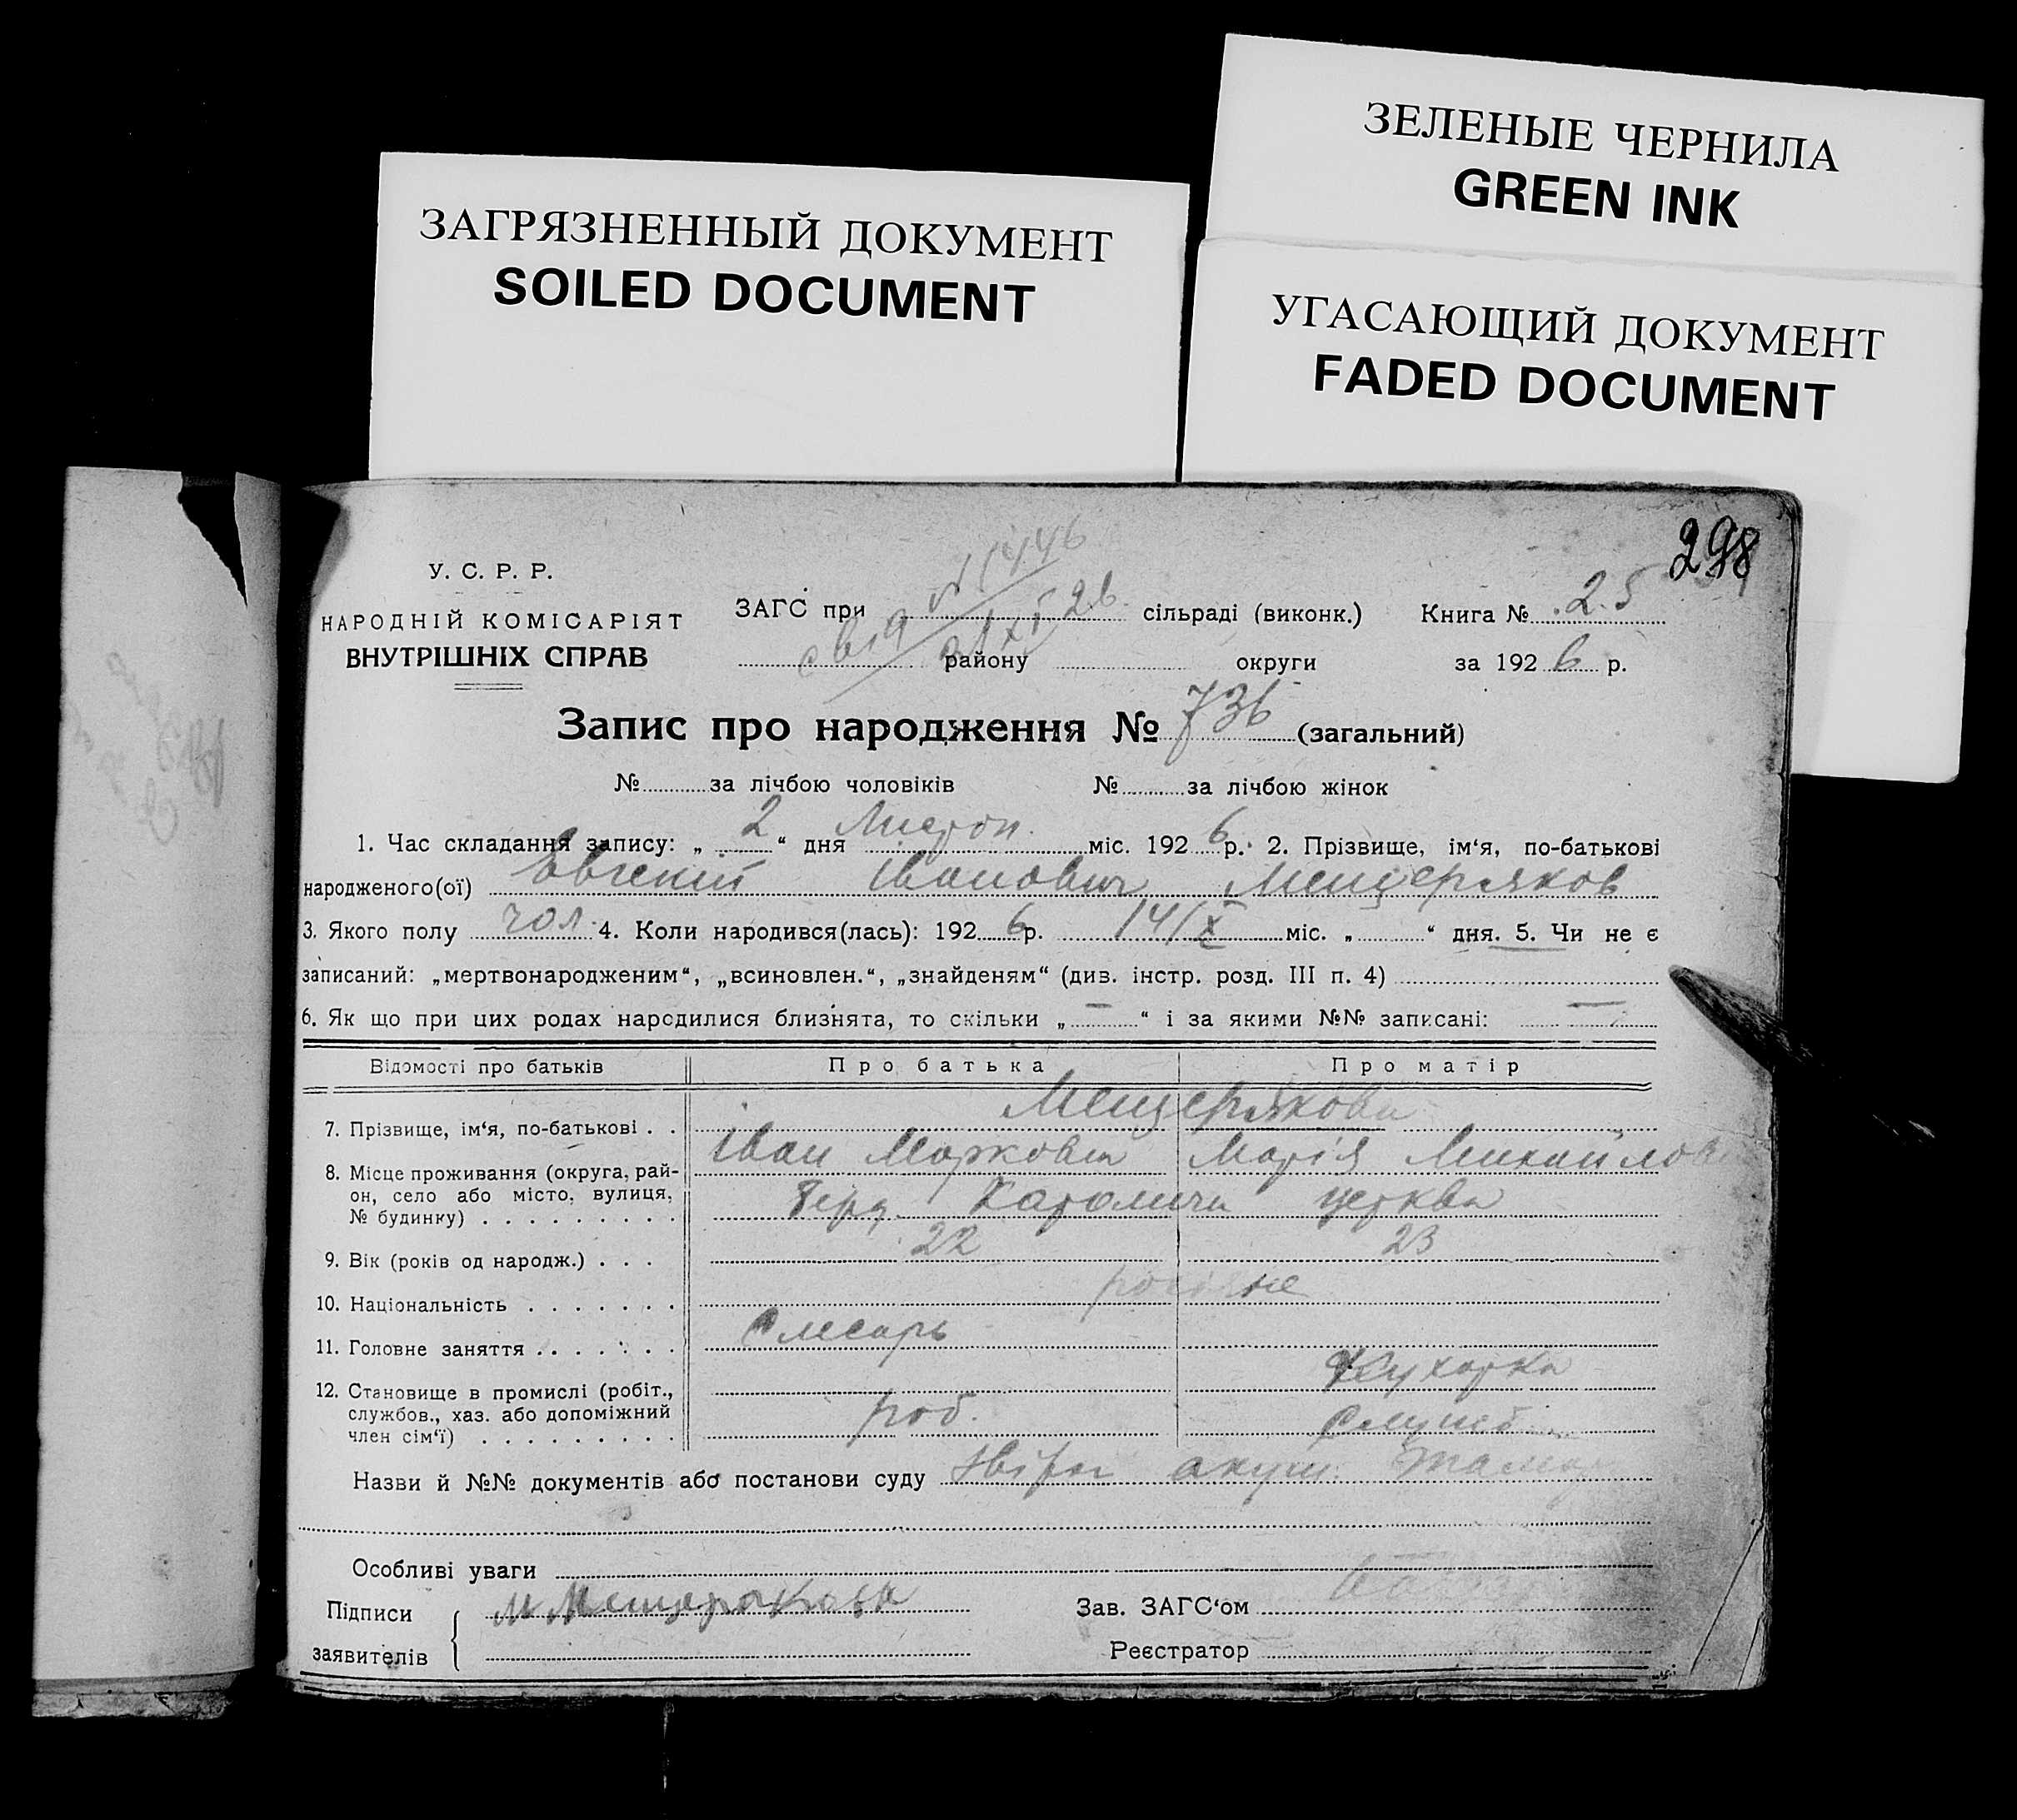 ЗЕЛЕНЫЕ ЧЕРНИЛА
GREEN INK
ЗАГРЯЗНЕННЫЙ ДОКУМЕНТ
SOILED DOCUMENT
УГАСАЮЩИЙ ДОКУМЕНТ
FADED DOCUMENT
298
У. С. Р. Р.
НАРОДНІЙ КОМІСАРІЯТ
ВНУТРІШНІХ СПРАВ
ЗАГС при сільраді (виконк.) Книга № 25
району округи за 1926 р.
Запис про народження № 736 (загальний)
№ за лічбою чоловіків № за лічбою жінок
1. Час складання запису: „ 2 “ дня Листоп. міс. 1926 р. 2. Прізвище, ім‘я, по-батькові
народженого(ої) Євгеній Іванович Мещеряков
3. Якого полу чол. 4. Коли народився(лась): 1926 р. 14/X міс. „ “ дня. 5. Чи не є
записаний: „мертвонародженим“, „всиновлен.“, „знайденям“ (див. інстр. розд. III п. 4)
6. Як що при цих родах народилися близнята, то скільки „ – “ і за якими №№ записані: –
Відомості про батьків Про батька Про матір
7. Прізвище, ім‘я, по-батькові . . Мещерякови
Іван Маркович Марія Михайлов
8. Місце проживання (округа, рай-
он, село або місто, вулиця,
№ будинку) . . . . . . . . . церква
9. Вік (років од народж.) . . . 22 23
10. Національність . . . . . . . росіяне
11. Головне заняття . . . . . . . Слесарь Кухарка
12. Становище в промислі (робіт.,
службов., хаз. або допоміжний
член сім‘ї) . . . . . . . . . роб. служб
Назви й №№ документів або постанови суду акуш.
Особливі уваги
Підписи М Мещерякова Зав. ЗАГС‘ом
заявителів Реєстратор